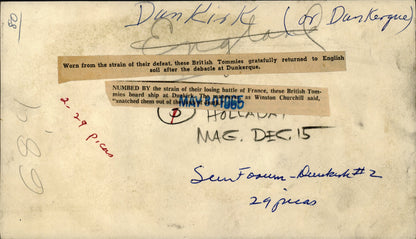 80
Dunkirk (or Dunkerque)
England
Worn from the strain of their defeat, these British Tommies gratefully returned to English
soil after the debacle at Dunkerque.
NUMBED BY the strain of their losing battle of France, these British Tom-
mies board ship at Dunkirk. The as Winston Churchill said,
"snatched them out of the
MAY 8 1965
2-29 picas
HOLLADAY
MAG. DEC. 15
Sun Forum-Dunkirk #2
29 picas